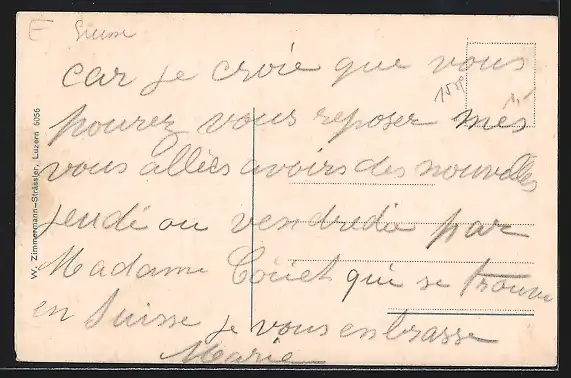 E Suisse
car je croie que vous
pourez vous reposer mes
vous alliès avoirs des nouvelles
jeudi ou vendredie par
Madame Coüet qui se trouve
en Suisse je vous enbrasse
Marie
W. Zimmermann-Strässler, Luzern 6056